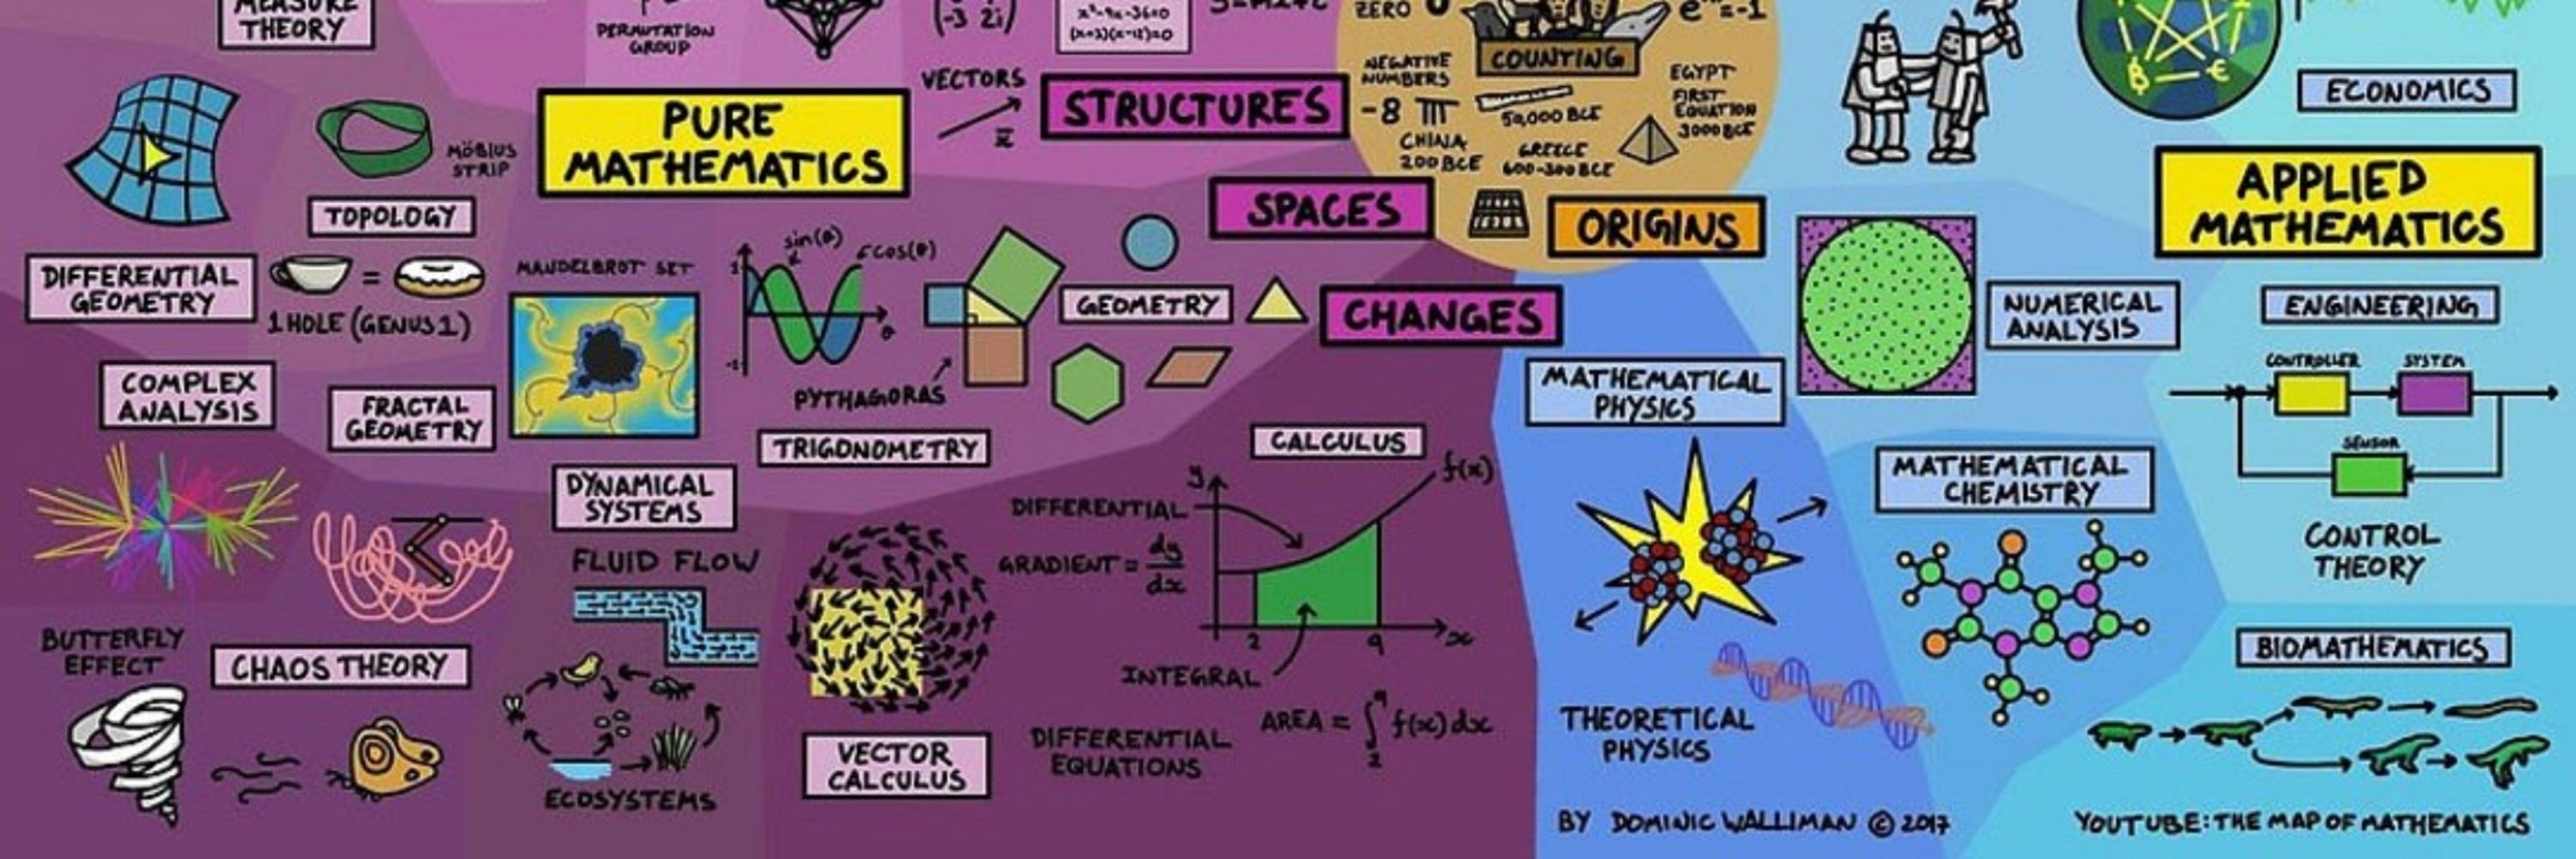 MEASURE
THEORY
PERMUTATION
GROUP
(-3 2i)
x²-9x-36=0
(x+3)(x-12)=0
ZERO 0
COUNTING
VECTORS
x
PURE
MATHEMATICS
STRUCTURES
NEGATIVE
NUMBERS
-8
CHINA
200 BCE
50,000 BCE
GREECE
600-300 BCE
EGYPT
FIRST
EQUATION
3000 BCE
ECONOMICS
MÖBIUS
STRIP
TOPOLOGY
SPACES
ORIGINS
APPLIED
MATHEMATICS
DIFFERENTIAL
GEOMETRY
=
1 HOLE (GENUS 1)
MANDELBROT SET
sin(θ)
cos(θ)
1
-1
θ
PYTHAGORAS
GEOMETRY
CHANGES
NUMERICAL
ANALYSIS
ENGINEERING
COMPLEX
ANALYSIS
FRACTAL
GEOMETRY
TRIGONOMETRY
CALCULUS
MATHEMATICAL
PHYSICS
CONTROLLER
SYSTEM
SENSOR
DYNAMICAL
SYSTEMS
FLUID FLOW
DIFFERENTIAL
GRADIENT = dy/dx
y
f(x)
2
9
x
INTEGRAL
MATHEMATICAL
CHEMISTRY
CONTROL
THEORY
BUTTERFLY
EFFECT
CHAOS THEORY
ECOSYSTEMS
VECTOR
CALCULUS
DIFFERENTIAL
EQUATIONS
AREA = ∫₂⁹ f(x) dx
THEORETICAL
PHYSICS
BIOMATHEMATICS
BY DOMINIC WALLIMAN © 2017
YOUTUBE: THE MAP OF MATHEMATICS